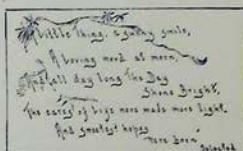 A little thing, a sunny smile,
A loving word at morn,
And all day long The Day
Shone Bright,
The cares of life were made more light,
And sweetest hopes
were born.
Selected